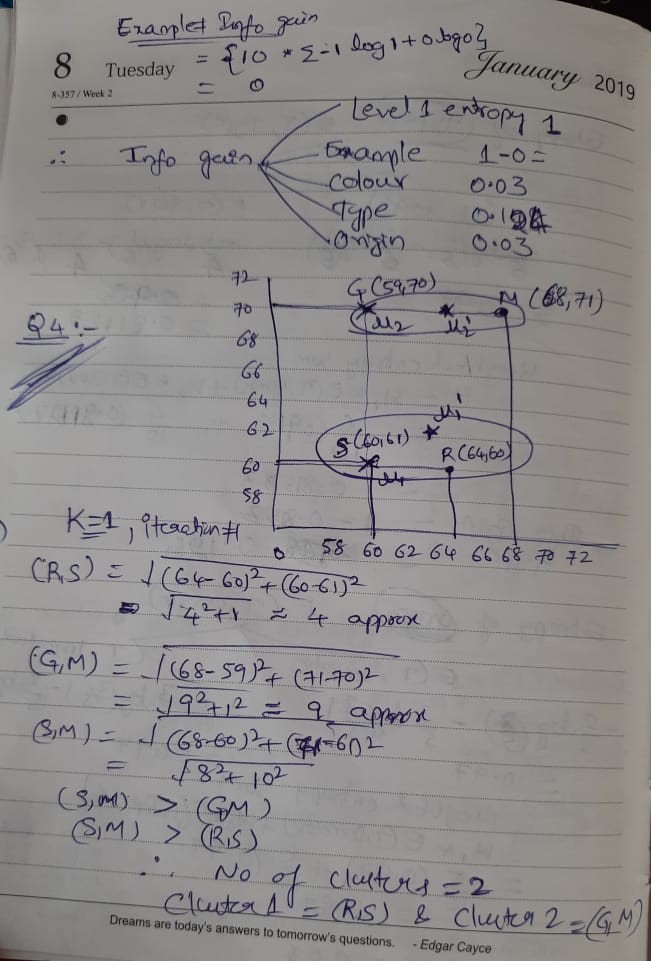 Example Info gain
= {10 * Σ-1 log 1 + 0 log 0}
= 0
8 Tuesday January 2019
8-357 / Week 2
Level 1 entropy 1
∴ Info gain Example 1-0=
Colour 0.03
Type
Origin 0.03
Q4:-
72
70
68
66
64
62
60
58
G(59,70)
M (68,71)
μ2 μ2'
μ1'
S(60,61)
R(64,60)
μ1
0 58 60 62 64 66 68 70 72
K=1, iteration #1
(R,S) = √(64-60)²+(60-61)²
= √4²+1 ≈ 4 approx
(G,M) = √(68-59)²+(71-70)²
= √9²+1² = 9 approx
(S,M) = √(68-60)²+(71-61)2
= √8²+10²
(S,M) > (G,M)
(S,M) > (R,S)
∴ No of clusters = 2
Cluster 1 = (R,S) & Cluster 2 = (G,M)
Dreams are today's answers to tomorrow's questions. - Edgar Cayce